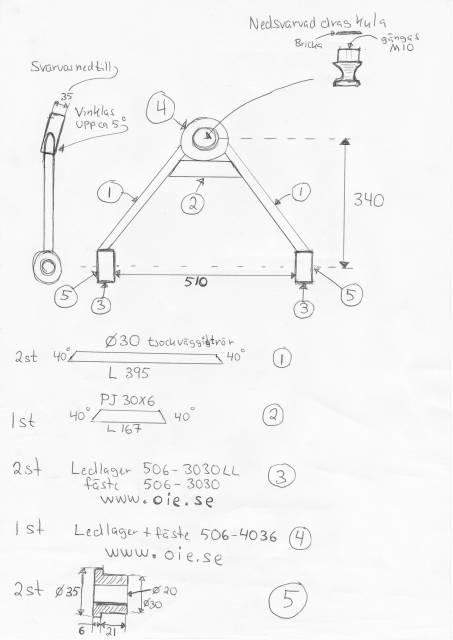 Nedsvarvad dragkula
Bricka
gängas
M10
Svarvas ned till
35
Vinklas
upp ca 5°
4
1
2
1
340
510
5
3
3
5
Ø30 tjockväggigt rör
2st 40° 40° 1
L 395
PJ 30X6
1st 40° 40° 2
L 167
2st Ledlager 506-3030LL
fäste 506-3030 3
www.oie.se
1st Ledlager + fäste 506-4036 4
www.oie.se
2st Ø35 Ø20 5
Ø30
6 21